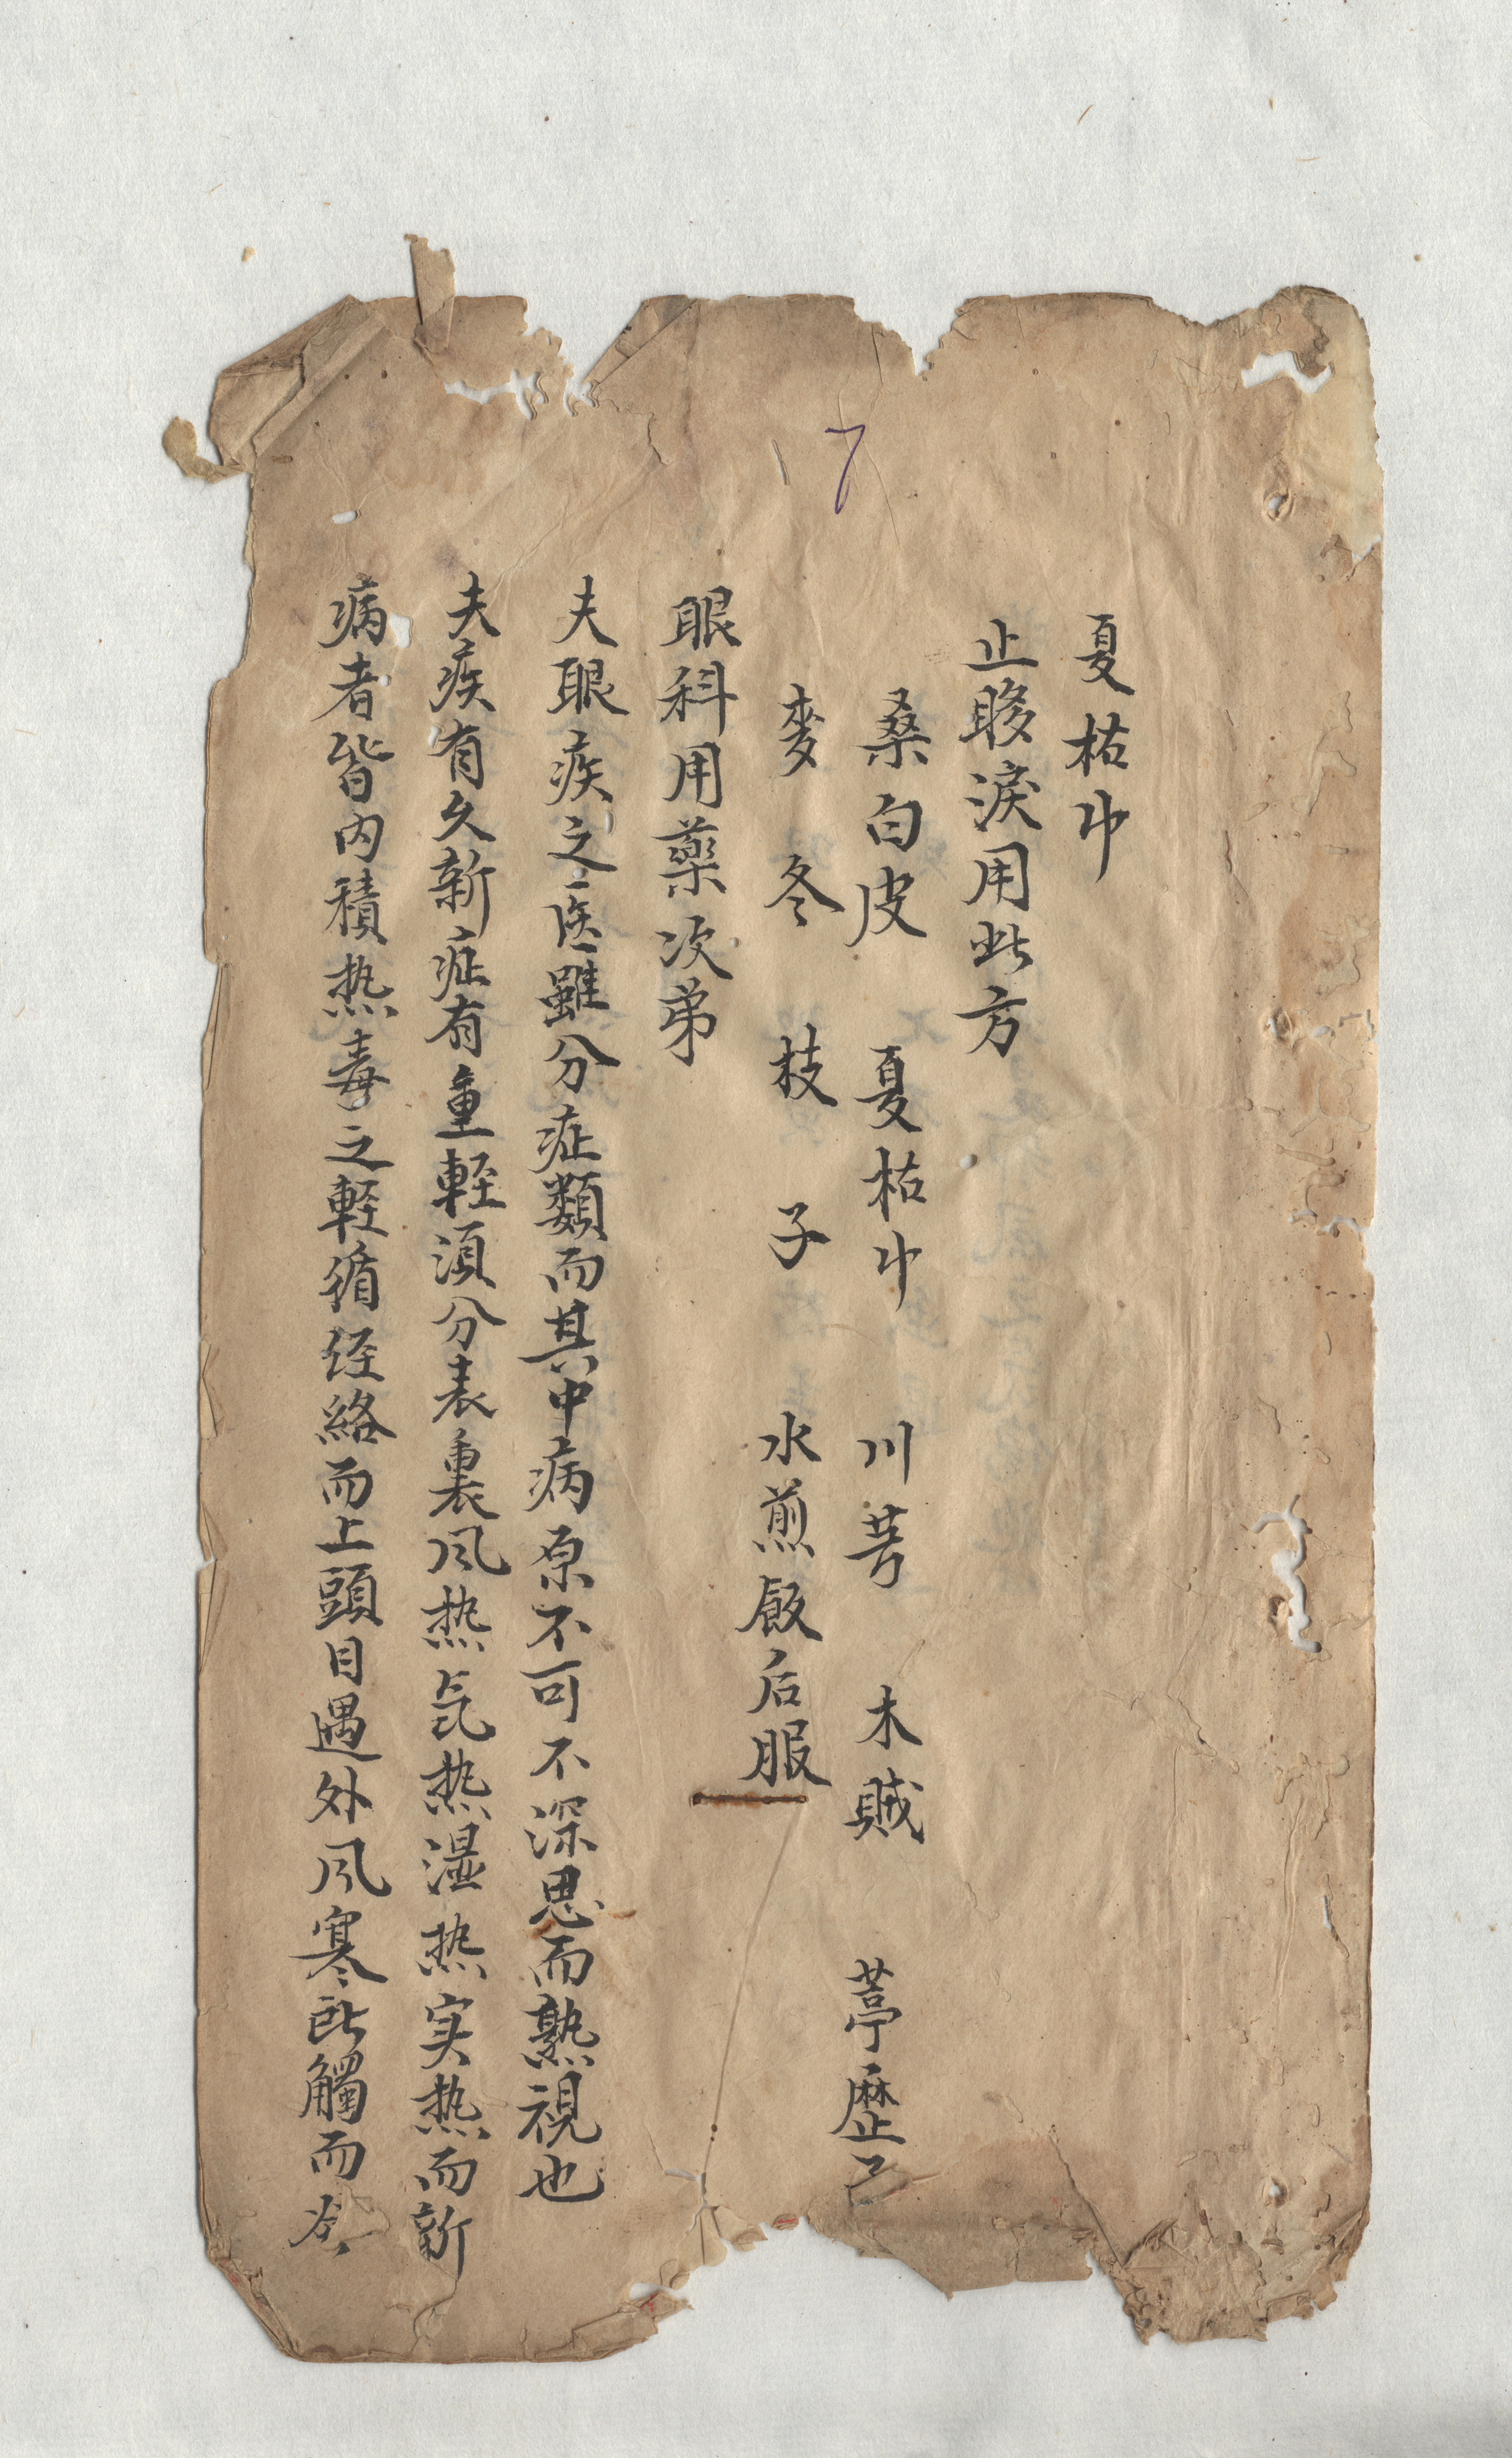 7
夏枯中
止眵淚用此方
桑白皮 夏枯中 川芎 木賊 葶歷己
麥冬 枝子 水煎飯后服
眼科用藥次第
夫眼疾之医雖分症類而其中病原不可不深思而熟視也
夫疾有久新症有重輕須分表裏风热氣热濕热实热而新
病者皆内積热毒之輕循経絡而上頭目遇外风寒所觸而